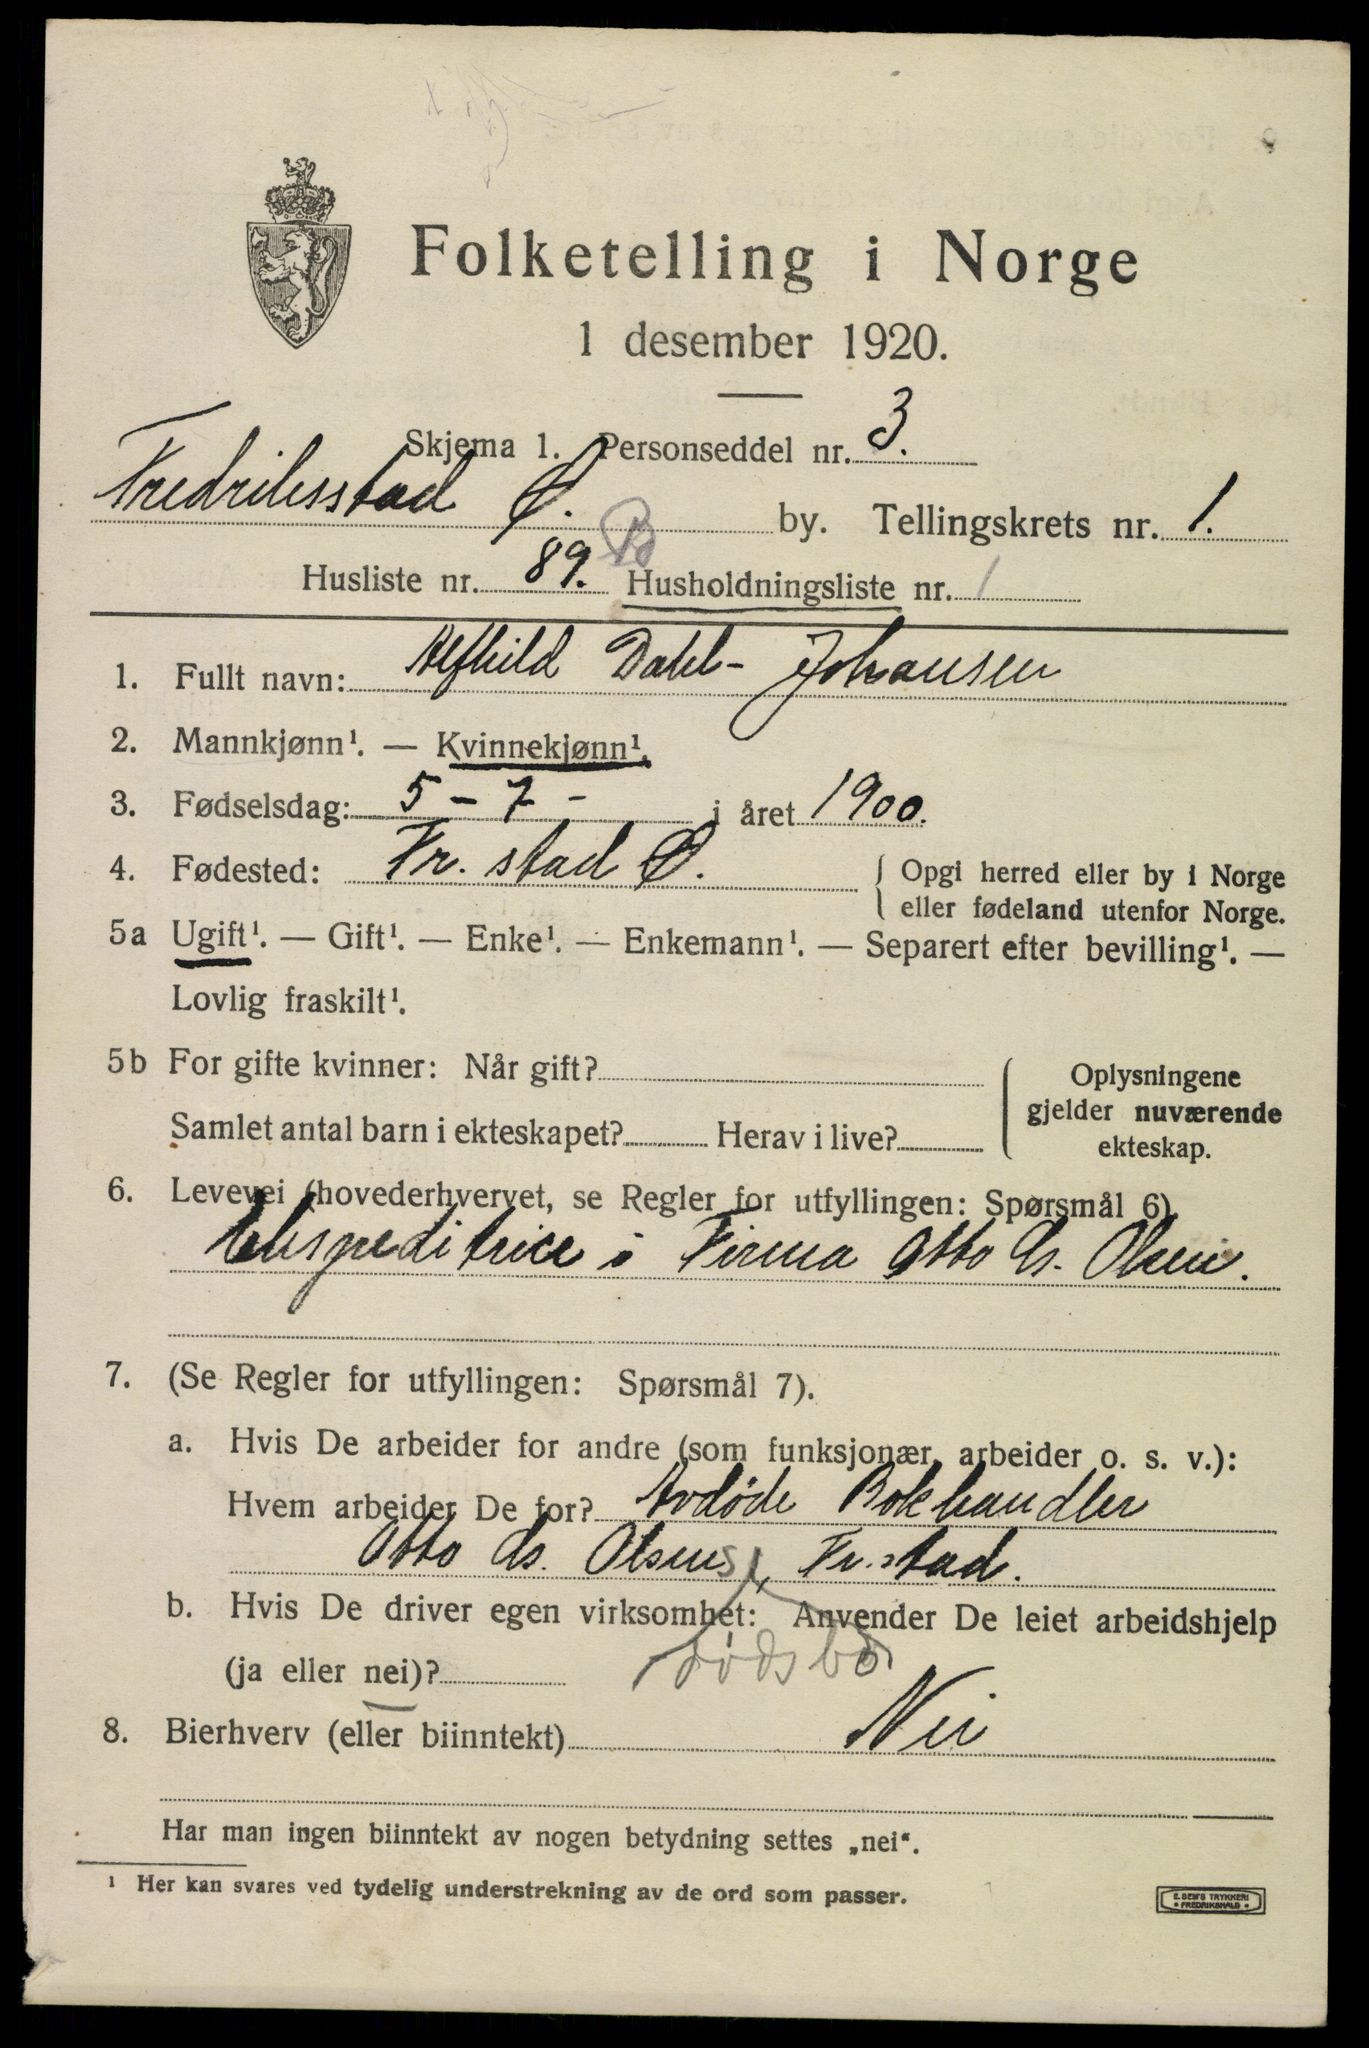 Folketelling i Norge
1 desember 1920.
Skjema 1. Personseddel nr. 3.
Fredriksstad Ø. by. Tellingskrets nr. 1.
Husliste nr. 89. B Husholdningsliste nr. 1
1. Fullt navn: Alfhild Dahl-Johansen
2. Mannkjønn¹. — Kvinnekjønn¹.
3. Fødselsdag: 5 - 7 - i året 1900.
4. Fødested: Fr.stad Ø. { Opgi herred eller by i Norge
eller fødeland utenfor Norge.
5a Ugift¹. — Gift¹. — Enke¹. — Enkemann¹. — Separert efter bevilling¹. —
Lovlig fraskilt¹.
5b For gifte kvinner: Når gift? { Oplysningene
gjelder nuværende
Samlet antal barn i ekteskapet? Herav i live? ekteskap.
6. Levevei (hovederhvervet, se Regler for utfyllingen: Spørsmål 6)
Ekspeditrice i Firma Otto Chs. Olsen.
7. (Se Regler for utfyllingen: Spørsmål 7).
a. Hvis De arbeider for andre (som funksjonær, arbeider o. s. v.):
Hvem arbeider De for? Avdøde Bokhandler
Otto Chs. Olsens, Fr.stad.
b. Hvis De driver egen virksomhet: Anvender De leiet arbeidshjelp
dødsbo
(ja eller nei)?
8. Bierhverv (eller biinntekt) Nei
Har man ingen biinntekt av nogen betydning settes „nei“.
¹ Her kan svares ved tydelig understrekning av de ord som passer.
E. SEM'S TRYKKERI
• FREDRIKSHALD •